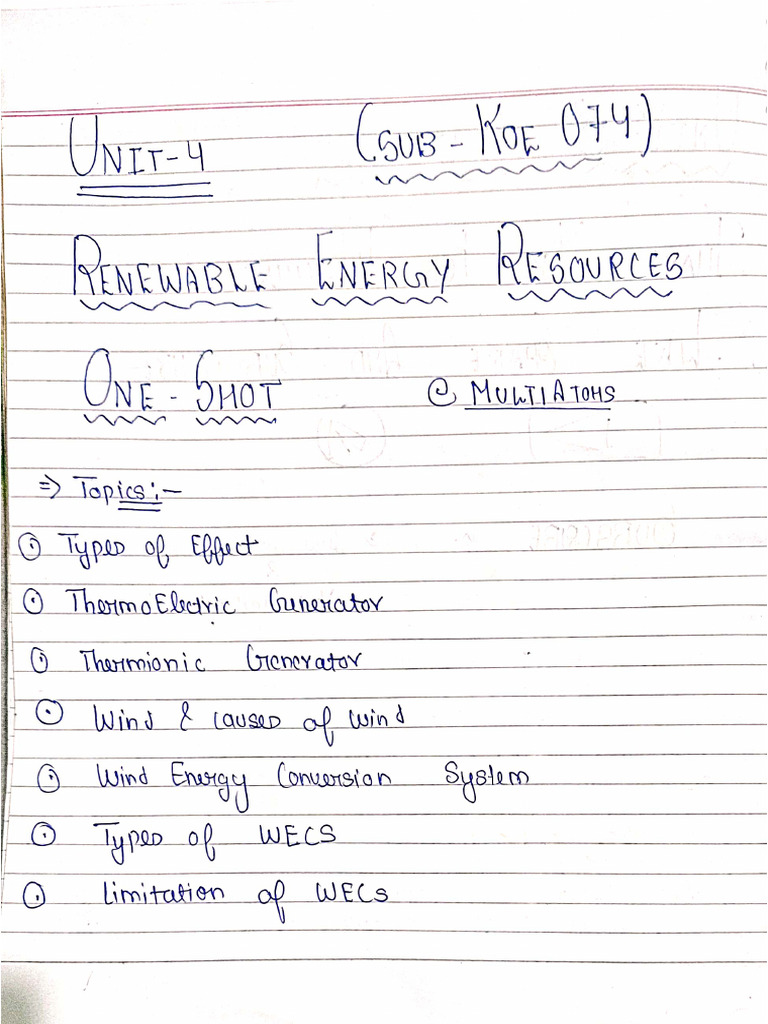 UNIT-4 (SUB - KOE 074)
RENEWABLE ENERGY RESOURCES
ONE - SHOT @ MULTIATOMS
⇒ Topics:-
⊙ Types of Effect
⊙ ThermoElectric Generator
⊙ Thermionic Generator
⊙ Wind & causes of wind
⊙ Wind Energy Conversion System
⊙ Types of WECS
⊙ Limitation of WECS